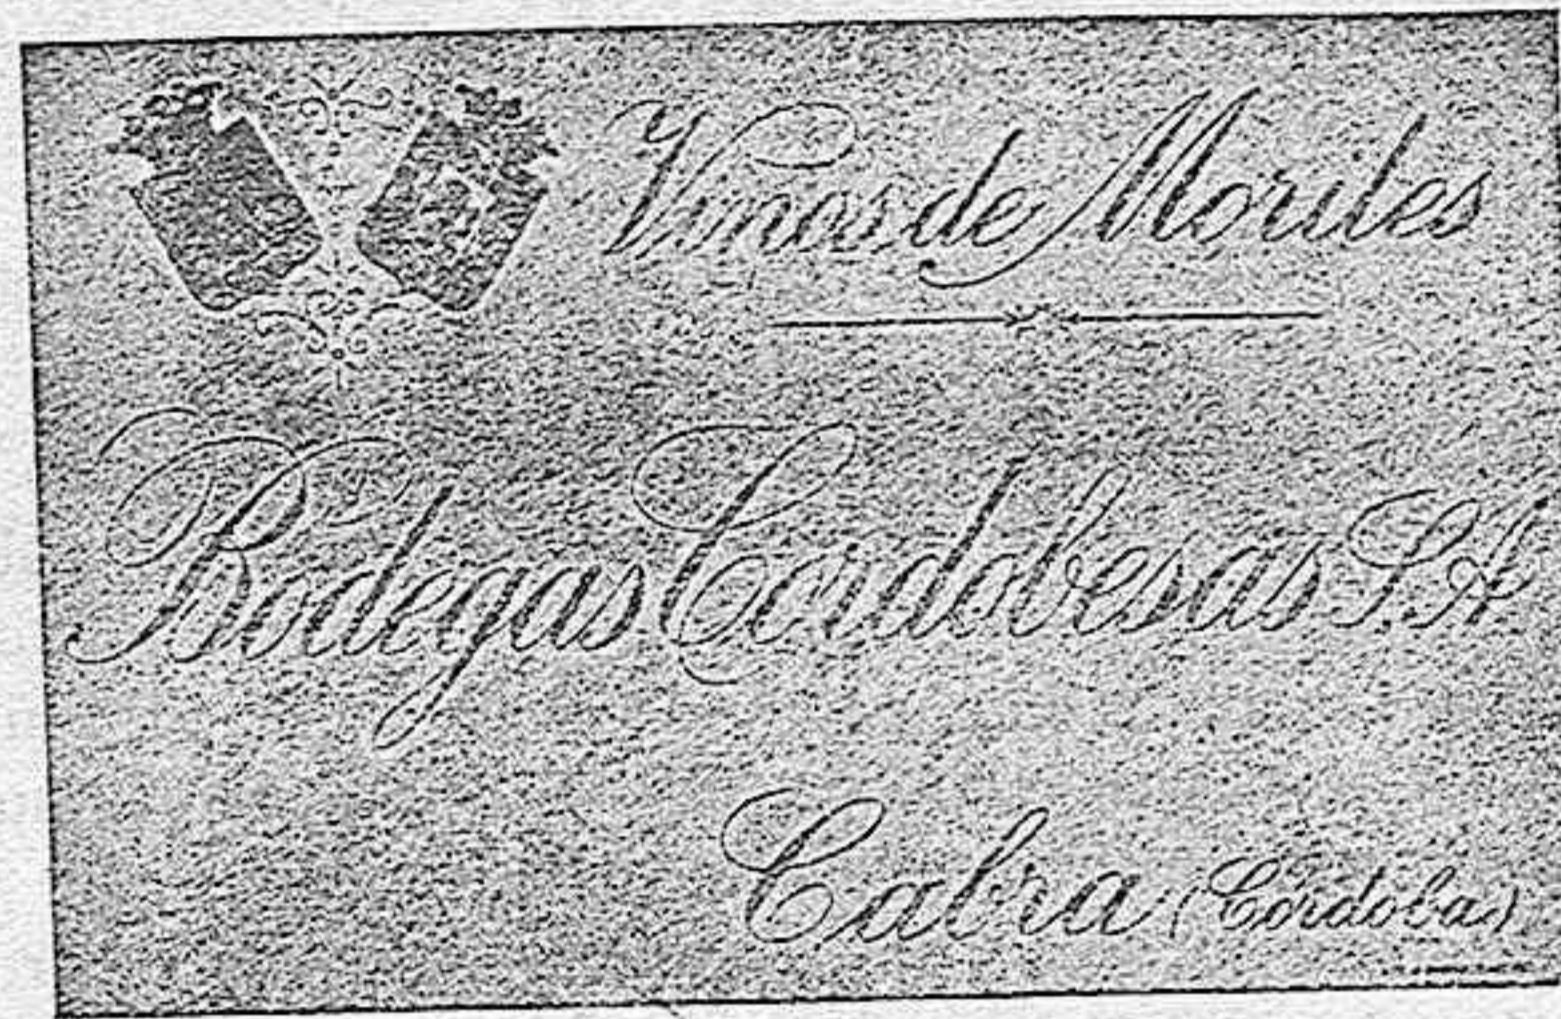 Vinos de Moriles
Bodegas Cordobesas S.A
Cabra (Córdoba)